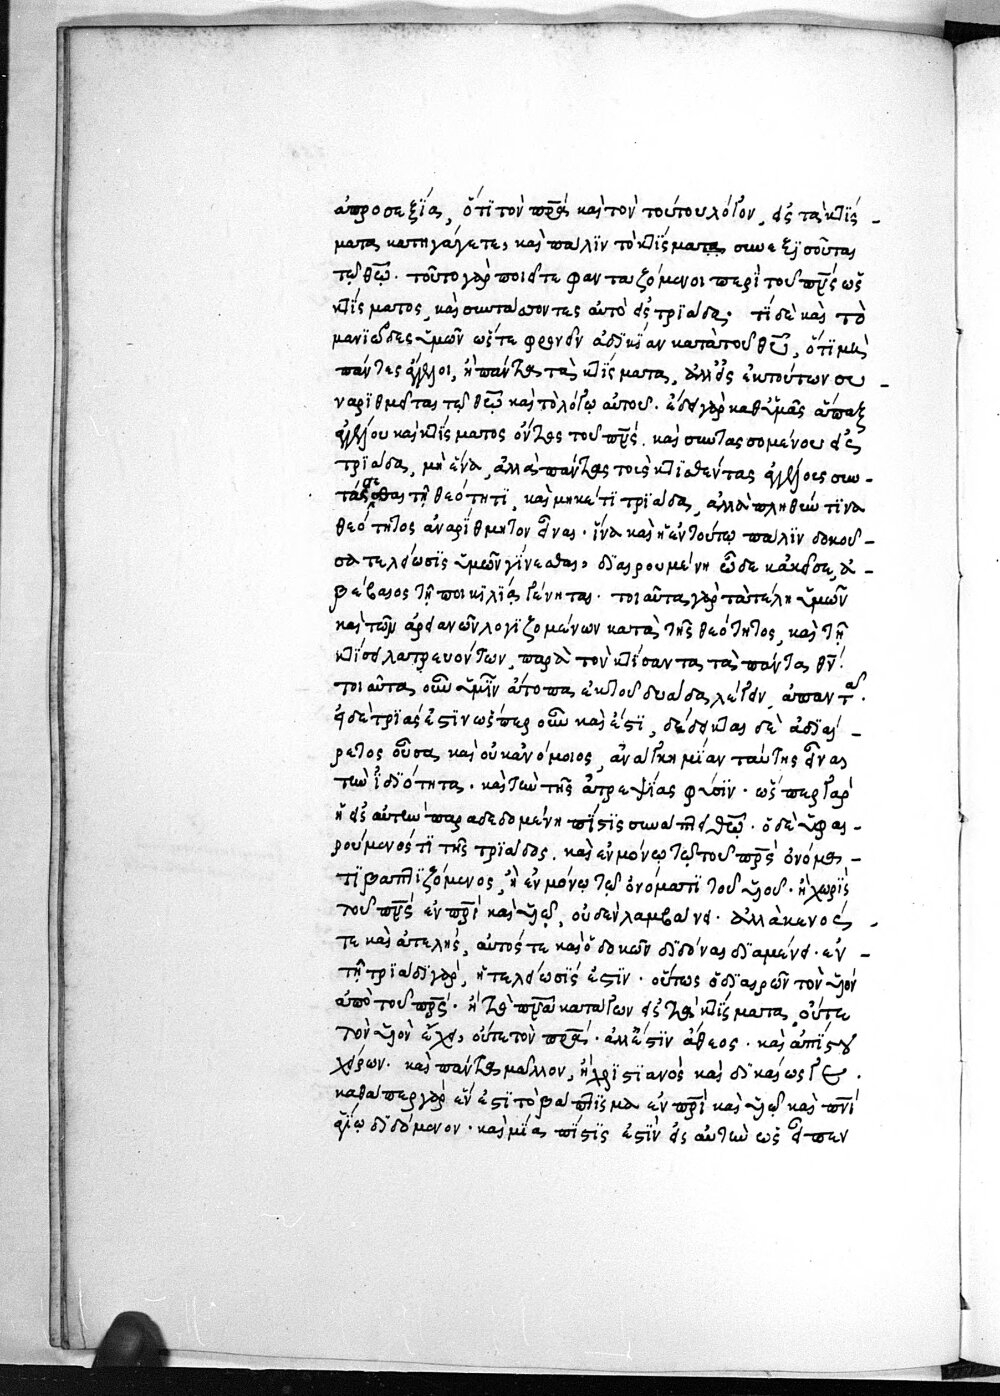 ἀπροσεξίας, ὅτι τὸν πρ̅α̅ καὶ τὸν τούτου λόγον, εἰς τὰ κτίς-
ματα κατηγάγετε, καὶ πάλιν τὸ κτίσματα συνεξισοῦται
τῷ θεῷ. τοῦτο γὰρ ποιεῖτε φανταζόμενοι περὶ τοῦ πν̅ς̅ ὡς
κτίσματος, καὶ συντάσσοντες αὐτὸ εἰς τριάδα. τί δὲ καὶ τὸ
μανιῶδες ὑμῶν ὥστε φρονεῖν ἀδικίαν κατὰ τοῦ θεοῦ, ὅτι μὴ
πάντες ἄγγελοι, ἢ πάντα τὰ κτίσματα, ἀλλ' εἷς ἐκ τούτων συ-
ναριθμεῖται τῷ θεῷ καὶ τῷ λόγῳ αὐτοῦ. εἰ γὰρ καθ' ὑμᾶς ἅπαξ
ἀγγέλου καὶ κτίσματος ὄντος τοῦ πν̅ς̅. καὶ συντασσομένου εἰς
τριάδα, μὴ ἕνα, ἀλλὰ πάντας τοὺς κτισθέντας ἀγγέλους συν-
τάσσεσθαι τῇ θεότητι, καὶ μηκέτι τριάδα, ἀλλὰ πληθύν τινα
θεότητος ἀναρίθμητον εἶναι. ἵνα καὶ ἡ ἐν τούτῳ πάλιν δοκοῦ-
σα τελείωσις ὑμῶν γίνεσθαι, διαιρουμένη ὧδε κἀκεῖσε, ἀ-
βέβαιος τῇ ποικιλίᾳ γένηται. τοιαῦτα γὰρ τὰ τέλη ὑμῶν
καὶ τῶν ἀρειανῶν λογιζομένων κατὰ τῆς θεότητος, καὶ τῇ
κτίσει λατρευόντων, παρὰ τὸν κτίσαντα τὰ πάντα θ̅ν̅.
τοιαῦτα οὖν ὑμῖν ἄτοπα ἐκ τοῦ δυάδα λέγειν, ἀπαντᾷ.
εἰ δὲ τριάς ἐστιν ὥσπερ οὖν καὶ ἔστι, δέδεικται δὲ ἀδιαί-
ρετος οὖσα, καὶ οὐκ ἀνόμοιος, ἀνάγκη μίαν ταύτης εἶναι
τὴν ἀϊδιότητα. καὶ τὴν τῆς ἀτρεψίας φύσιν. ὥσπερ γὰρ
ἡ εἰς αὐτὴν παραδεδομένη πίστις συνάπτει θεῷ. ὁ δὲ ὑφαι-
ρούμενός τι τῆς τριάδος. καὶ ἐν μόνῳ τῷ τοῦ πρ̅ς̅ ὀνόμα-
τι βαπτιζόμενος, ἢ ἐν μόνῳ τῷ ὀνόματι τοῦ υἱοῦ. ἢ χωρὶς
τοῦ πν̅ς̅ ἐν πρ̅ι̅ καὶ υἱῷ, οὐδὲν λαμβάνει. ἀλλὰ κενός
τε καὶ ἀτελής, αὐτός τε καὶ ὁ δοκῶν διδόναι διαμένει. ἐν
τῇ τριάδι γὰρ, ἡ τελείωσίς ἐστιν. οὕτως ὁ διαιρῶν τὸν υἱὸν
ἀπὸ τοῦ πρ̅ς̅. ἢ τὸ πν̅α̅ κατάγων εἰς τὰ κτίσματα, οὔτε
τὸν υἱὸν ἔχει, οὔτε τὸν πρ̅α̅. ἀλλ' ἔστιν ἄθεος. καὶ ἀπίστου
χείρων. καὶ πάντα μᾶλλον, ἢ χριστιανός καὶ δικαίως γε.
καθάπερ γὰρ ἕν ἐστι τὸ βάπτισμα ἐν πρ̅ι̅ καὶ υἱῷ καὶ πν̅ι̅
ἁγίῳ διδόμενον. καὶ μία πίστις ἐστὶν εἰς αὐτὴν ὡς εἶπεν